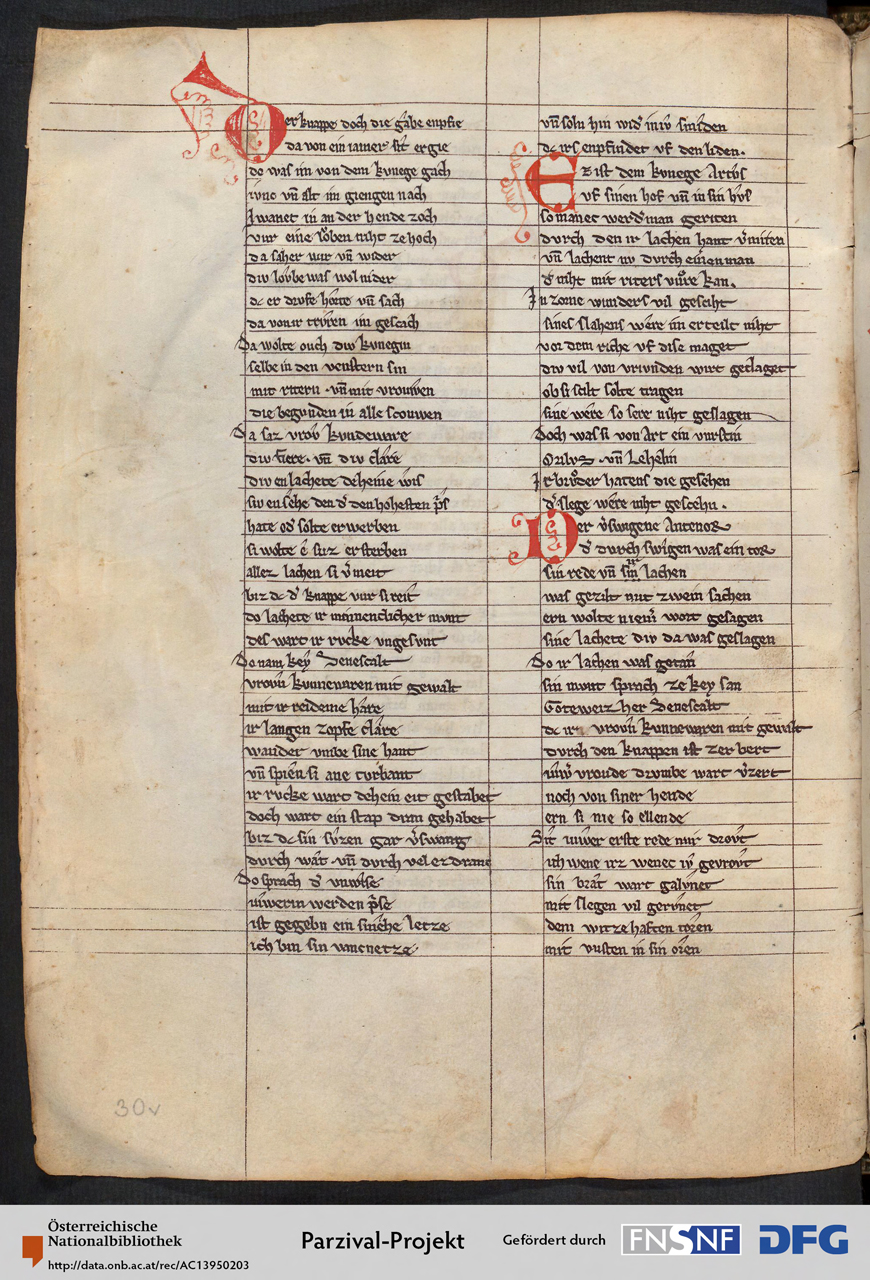 Der knappe doch die gabe enpfie
da von ein iamer sit ergie
do was im von dem kvnege gach
ivnc vn̄ alt im giengen nach
Iwanet in an der hende zoch
vur eine loͮben niht ze hoch
da saher vur vn̄ wider
div lovbe was wol nider
dc er drvfe horte vn̄ sach
da von ir trvren im gescach
Da wolte ouch div kvnegin
selbe in den venstern sin
mit ritern · vn̄ mit vrouwen
die begunden in alle scouwen
Da saz vrov kvneware
div fiere · vn̄ div clare
div en lachete deheine wis
siv en sehe den dˢ den hohesten pris
hate odˢ solte erwerben
si wolte e sus ersterben
allez lachen si vˢmeit
biz dc dˢ knappe vur si reit
do lachete ir minneclicher munt
des wart ir rvcke vngesvnt
Do nam key Senescalt
vrovn kvnnewaren mit gewalt
mit ir reideme hare
ir langen zopfe clare
wander vmbe sine hant
vn̄ spien si ane tvrbant
ir rvcke wart dehein eit gestabet
doch wart ein stap dran gehabet
biz dc sin svsen gar vˢswanc
durch wat · vn̄ durch vel er dranc
Do sprach dˢ vnwise
iuwerm werden prise
ist gegebn ein smehe letze
ich bin sin vancnetze·
vn̄ soln hin widˢ in iv smiden
dc irs enpfindet vf den liden.
Ez ist dem kvnege Artvs
vf sinen hof vn̄ in sin hvs
so manec werdˢ man geriten
durch den ir lachen hant vˢmiten
vn̄ lachent nv durch einen man
dˢ niht mit riters vuͦre kan.
In zorne wunders vil gesciht
sines slahens were im erteilt niht
vor dem riche vf dise maget
div vil von vrivnden wirt geclaget
ob si scilt solte tragen
sine were so sere niht geslagen
Doch was si von Art ein vurstin
Orilvs · vn̄ Lehelin
Ir bruͦder hatens die geschen
dˢ slege were niht gescehn.
Der vˢswigene Antenor
dˢ durch swigen was ein tor
sin rede vn̄ sin lachen
was gezilt mit zwein sachen
ern wolte niemˢ wort gesagen
sine lachete div da was geslagen
Do ir lachen was getan
sin munt sprach ze key san
Goteweiz her Senescalt
dc ir vrovn kvnnewaren mit gewalt
durch den knappen ist zerbert
iuwˢ vroude drumbe wart vˢzert
noch von siner hende
ern si nie so ellende
Sit iuwer erste rede mir drovt
ich wene irz wenec iv gevrovt
sin brat wart galvnet
mit slegen vil gervnet
dem witzehaften toren
mit vusten in sin oren
30v
Österreichische
Nationalbibliothek
http://data.onb.ac.at/rec/AC13950203
Parzival-Projekt
Gefördert durch
FNSNF
DFG